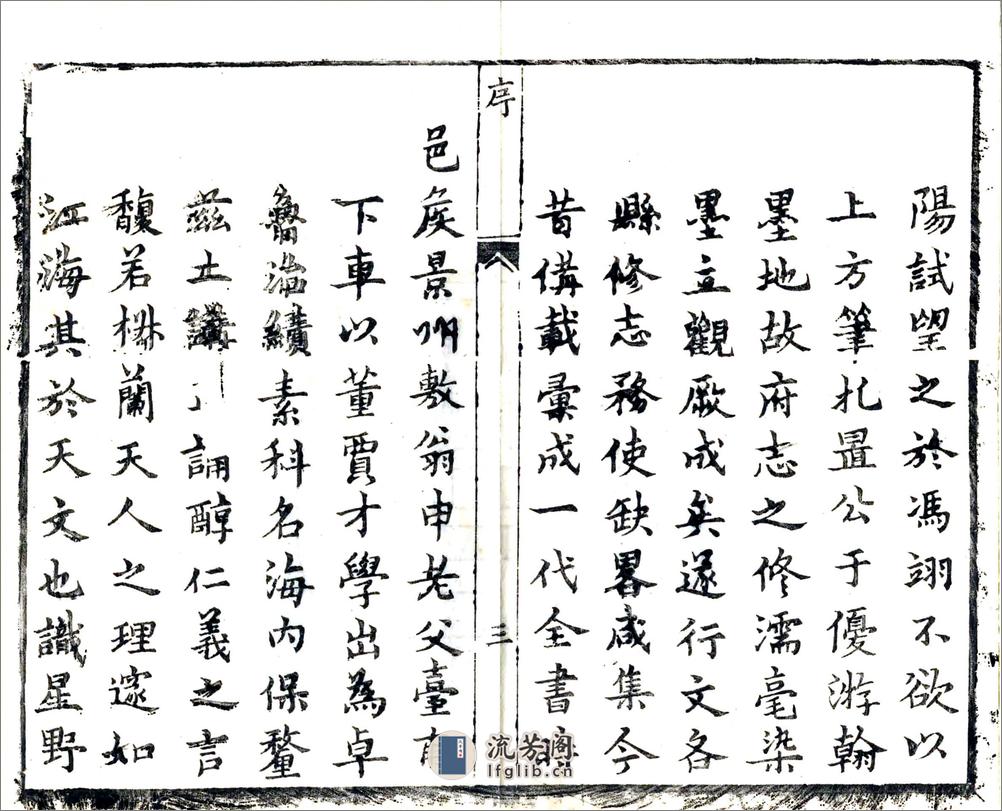 陽試望之於馮翊不欲以
上方筆札置公于優游翰
墨地故府志之修濡毫染
墨立觀厥成矣遂行文各
縣修志務使缺畧咸集今
昔備載彙成一代全書
序
三
邑矦景州敷翁申老父臺
下車以董賈才學出為卓
魯治績素科名海內保釐
茲土講誦醇仁義之言
馥若椒蘭天人之理邃如
江海其於天文也識星野
流芳阁
lfglib.cn